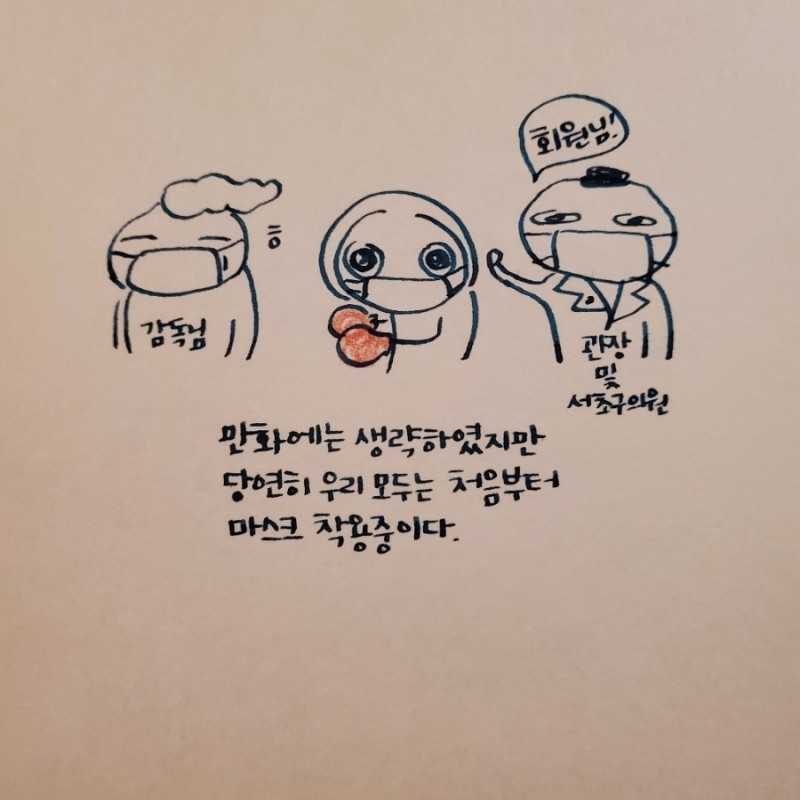 회원님!
흥
감독님
관장
및
서초구의원
만화에는 생략하였지만
당연히 우리 모두는 처음부터
마스크 착용중이다.